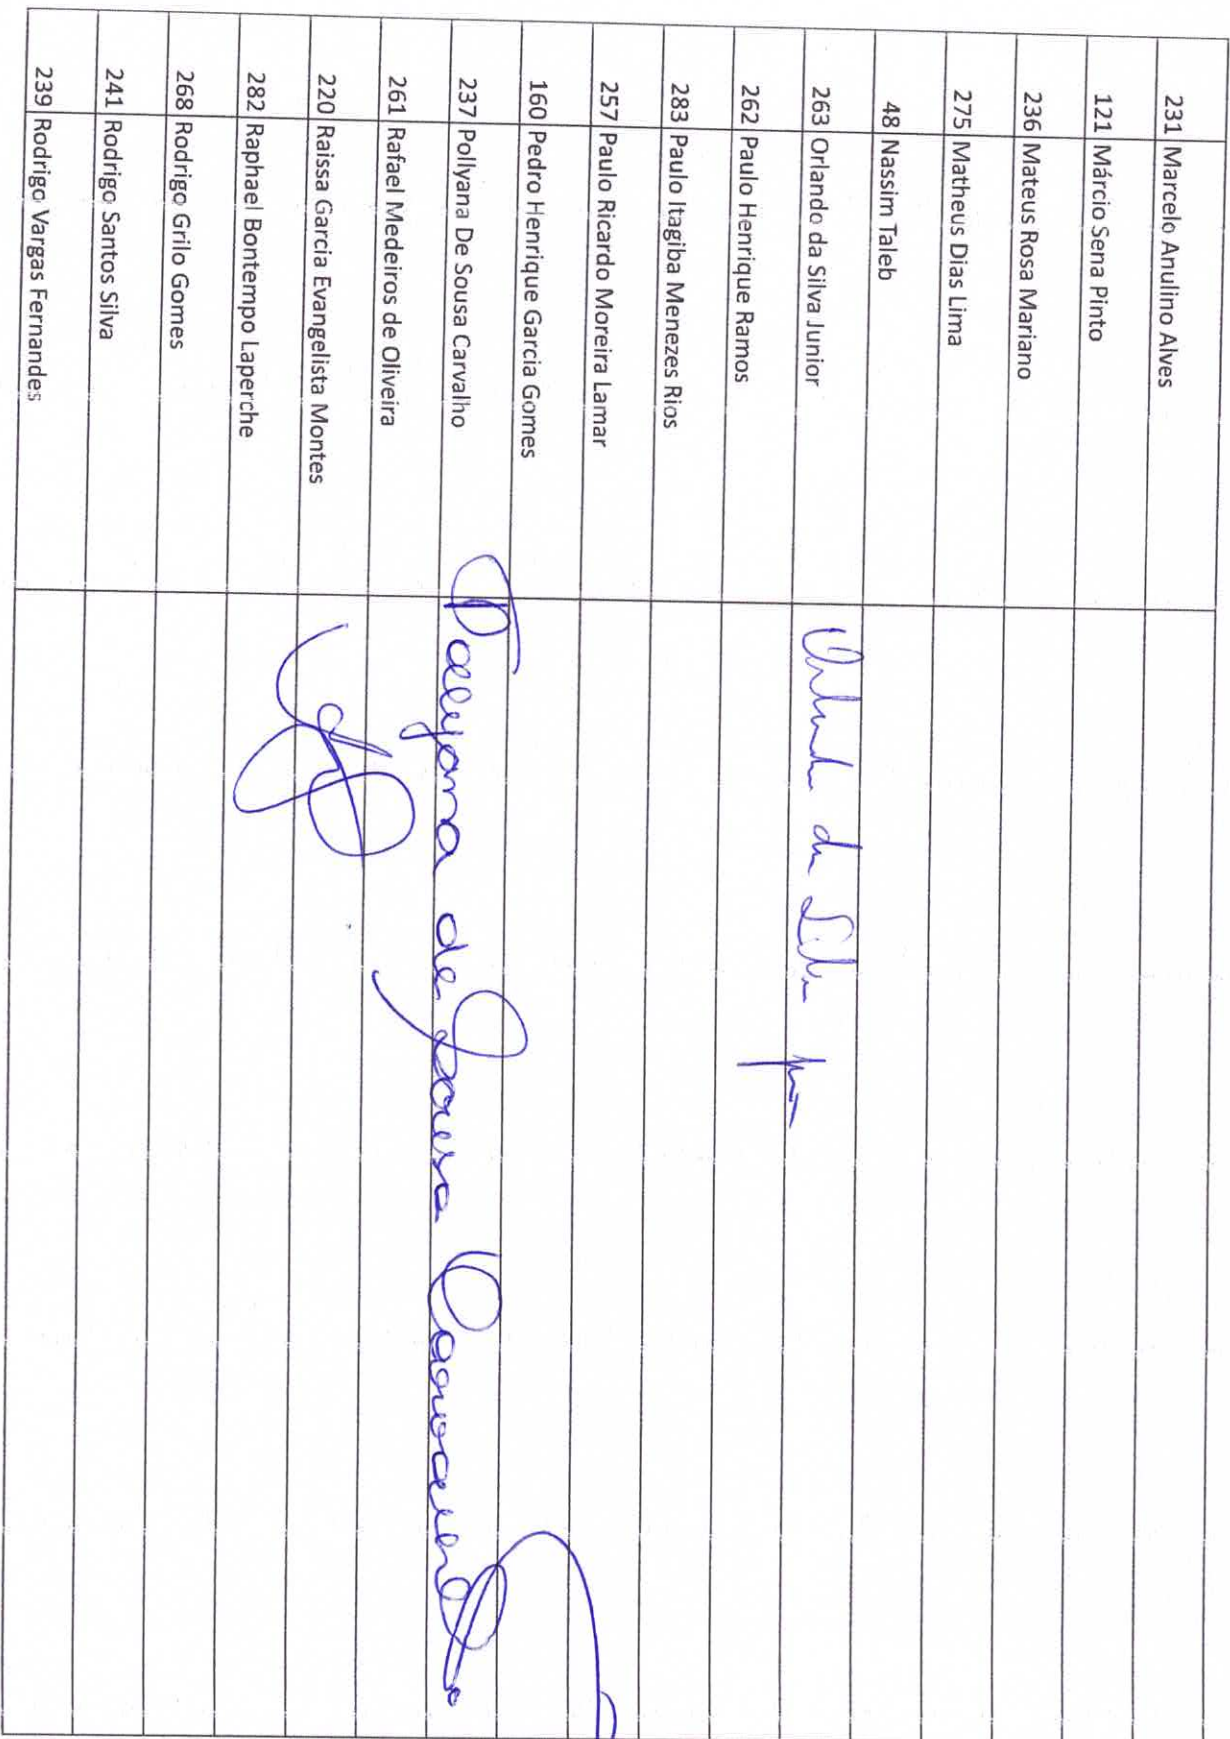 231 Marcelo Anulino Alves
121 Márcio Sena Pinto
236 Mateus Rosa Mariano
275 Matheus Dias Lima
48 Nassim Taleb
263 Orlando da Silva Junior Orlando da Silva
262 Paulo Henrique Ramos
283 Paulo Itagiba Menezes Rios
257 Paulo Ricardo Moreira Lamar
160 Pedro Henrique Garcia Gomes
237 Pollyana De Sousa Carvalho Pollyana de Sousa Carvalho
261 Rafael Medeiros de Oliveira
220 Raissa Garcia Evangelista Montes
282 Raphael Bontempo Laperche
268 Rodrigo Grilo Gomes
241 Rodrigo Santos Silva
239 Rodrigo Vargas Fernandes